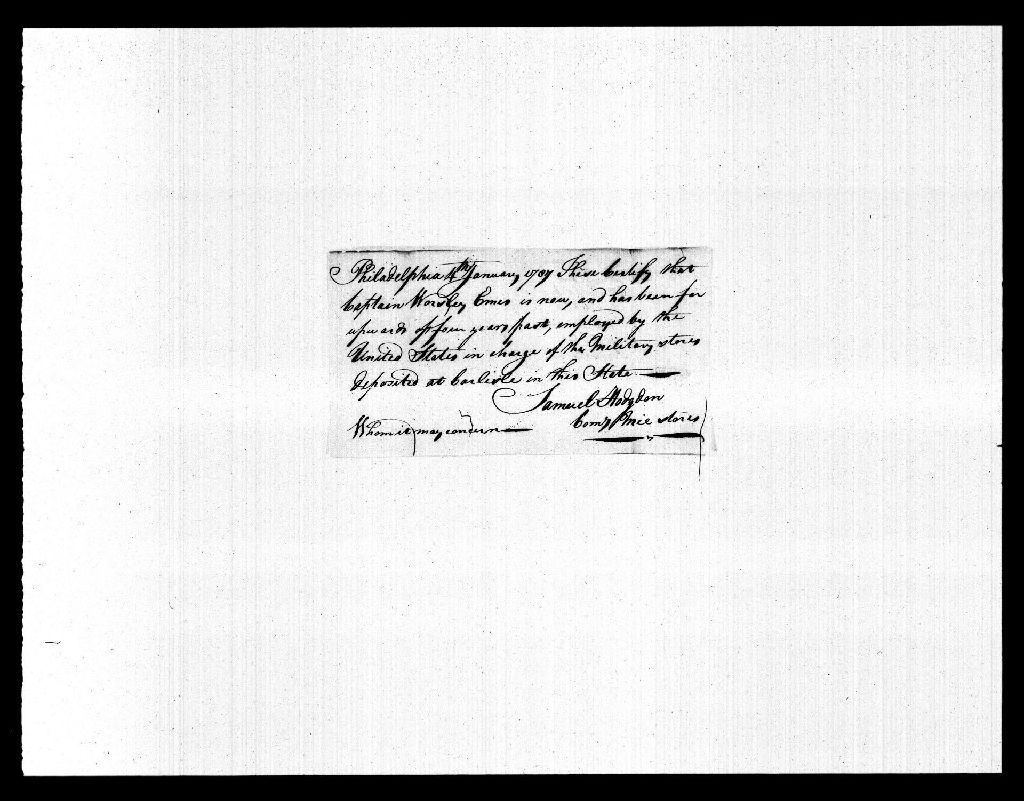 Philadelphia 4th January 1787 These Certify that
Captain Worsley Emes is now, and has been for
upwards of four years past, employed by the
United States in charge of the Military stores
deposited at Carlisle in this State
Samuel Hodgdon
Whom it may concern
Comy Mile stores